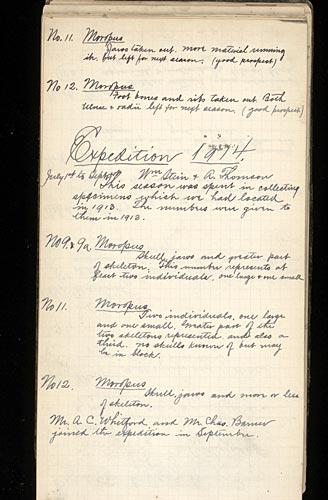 No. 11. Moropus
Jaws taken out. more material running
in, but left for next season. (good prospect)
No 12. Moropus
Foot bones and ribs taken out Both
ulnae & radii left for next season (good prospect)
Expedition 1914.
July 1st to Sept Wm Stein & A. Thomson
This season was spent in collecting
specimens which we had located
in 1913. The numbers were given to
them in 1913.
No 9 & 9a Moropus
Skull, jaws and greater part
of skeleton. This number represents at
least two individuals, one large & one small
No 11. Moropus
Two individuals, one large
and one small. Greater part of the
two skeletons represented and also a
third. no skulls known of but may
be in block.
No 12. Moropus
Skull, jaws and more or less
of skeleton.
Mr. A. C. Whitford and Mr. Chas. Barner
joined the expedition in September.